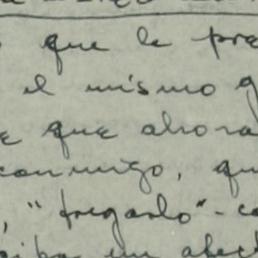 que le pre
el mismo q
e que ahora
conmigo, qu
, "fregarlo" - co
un afect